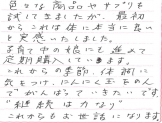 色々な商品やサプリも
試してきましたが、最初
からこれは体に本当に良い
と実感いたしました。
子育て中の娘にも進めて
定期購入しています。
これからの季節、体調に
気をつけてにんにくとのん
でがんばっていきたいです。
"継続は力なり"
これからもお世話になります